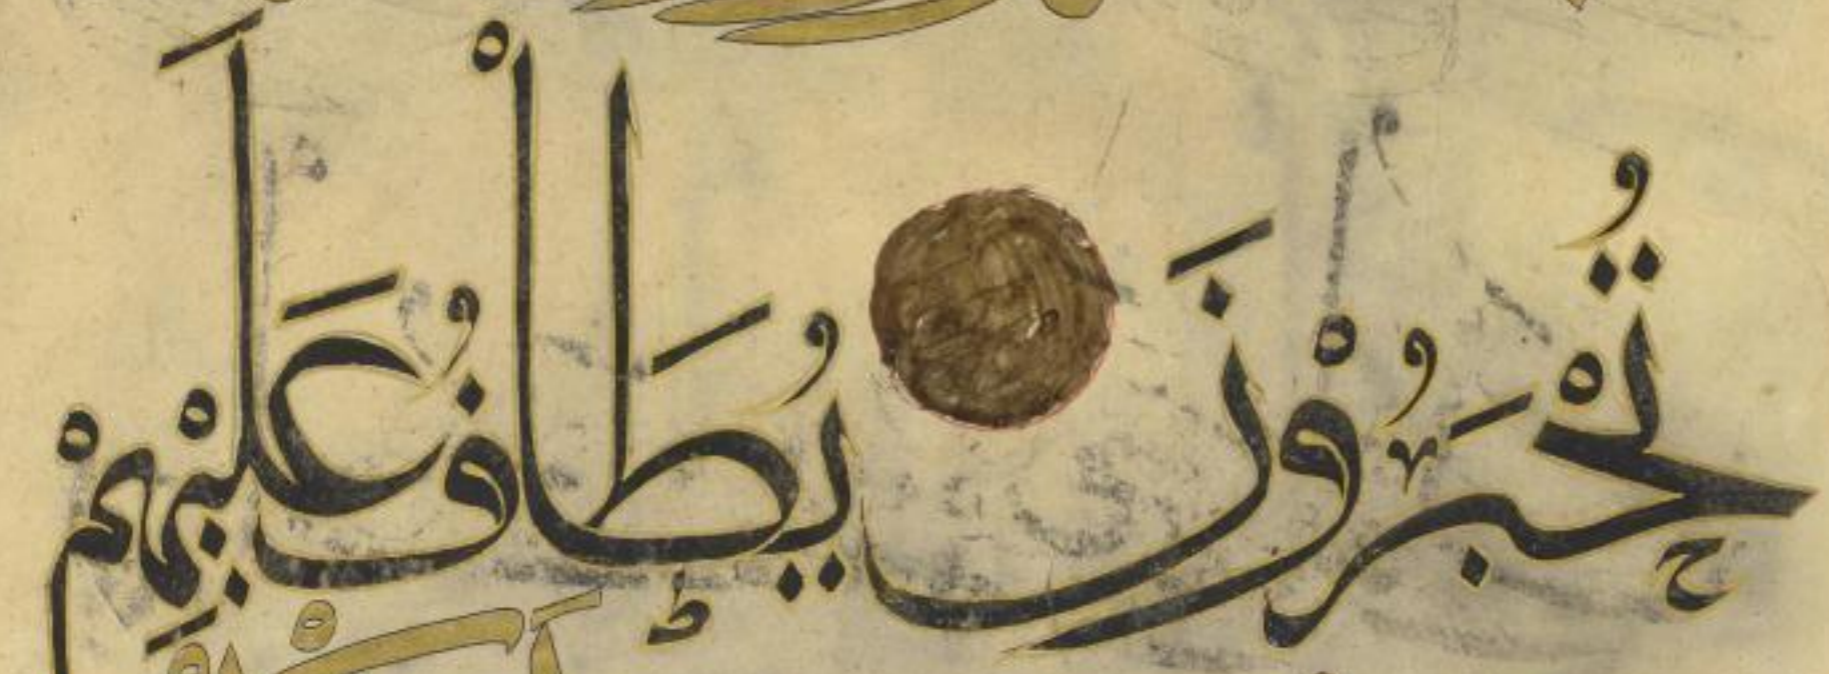 تُحْبَرُوْنَ يُطَاْفُ عَلَيْهِمْ